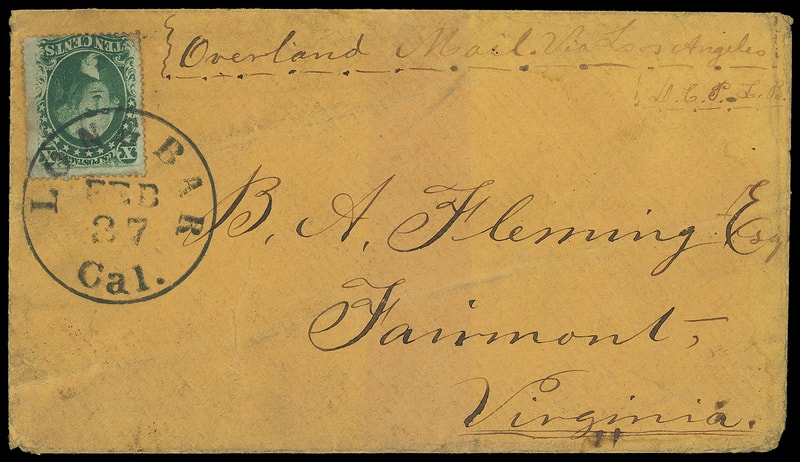 Overland Mail. Via Los Angeles
TEN CENTS
U.S. POSTAGE
X X
LONG BAR
FEB
27
Cal.
B. A. Fleming Esq
Fairmont,
Virginia.